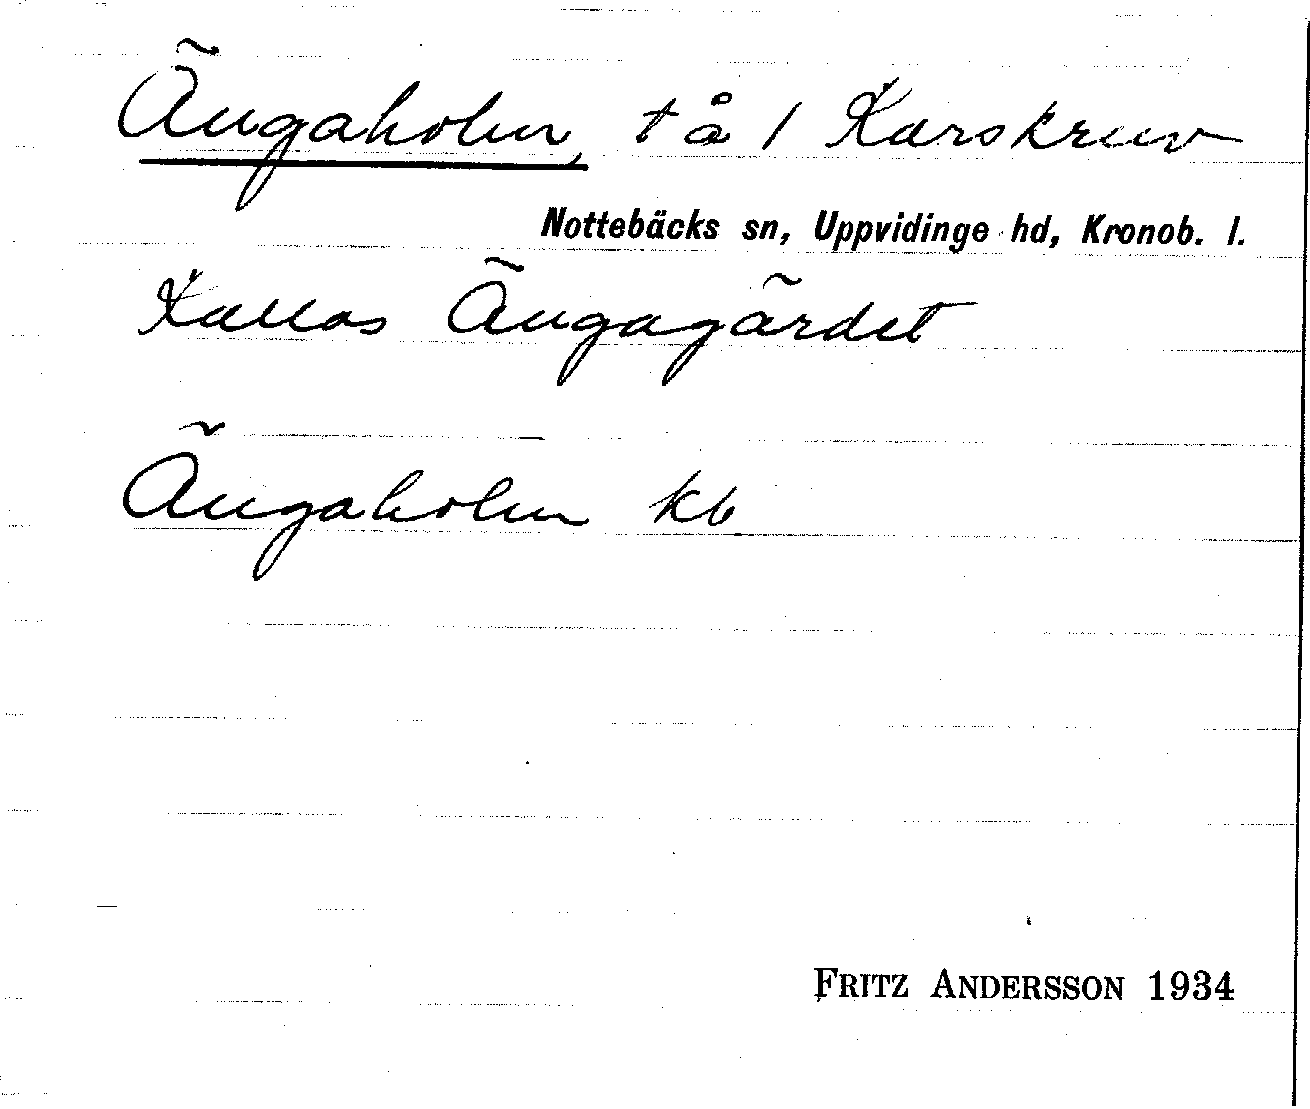 Ängaholm, t å / Karskruv
Nottebäcks sn, Uppvidinge hd, Kronob. l.
Kallas Ängagärdet
Ängaholm kb
FRITZ ANDERSSON 1934